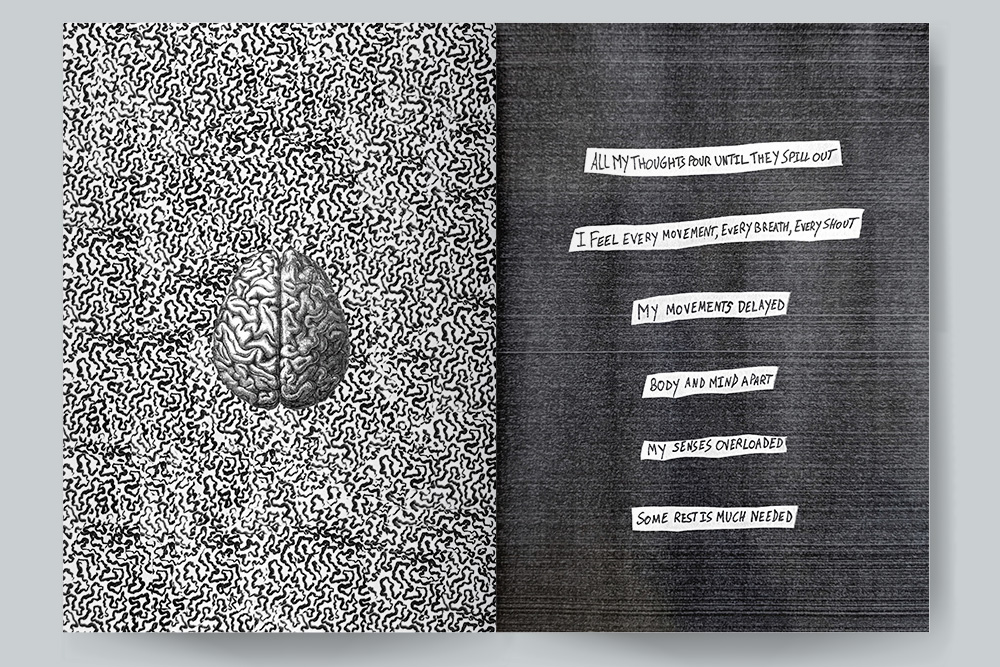 ALL MY THOUGHTS POUR UNTIL THEY SPILL OUT
I FEEL EVERY MOVEMENT, EVERY BREATH, EVERY SHOUT
MY MOVEMENTS DELAYED
BODY AND MIND APART
MY SENSES OVERLOADED
SOME REST IS MUCH NEEDED